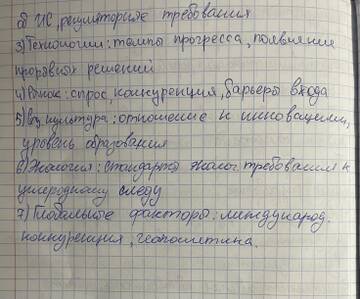 об ИС, регуляторные требования
3) Технологии: темпы прогресса, появление
прорывных решений
4) Рынок: спрос, конкуренция, барьеры входа
5) культура: отношение к инновациям,
уровень образования
6) Экология: стандарты эколог. требования к
углеродному следу
7) Глобальные факторы: международ.
конкуренция, геополитика.